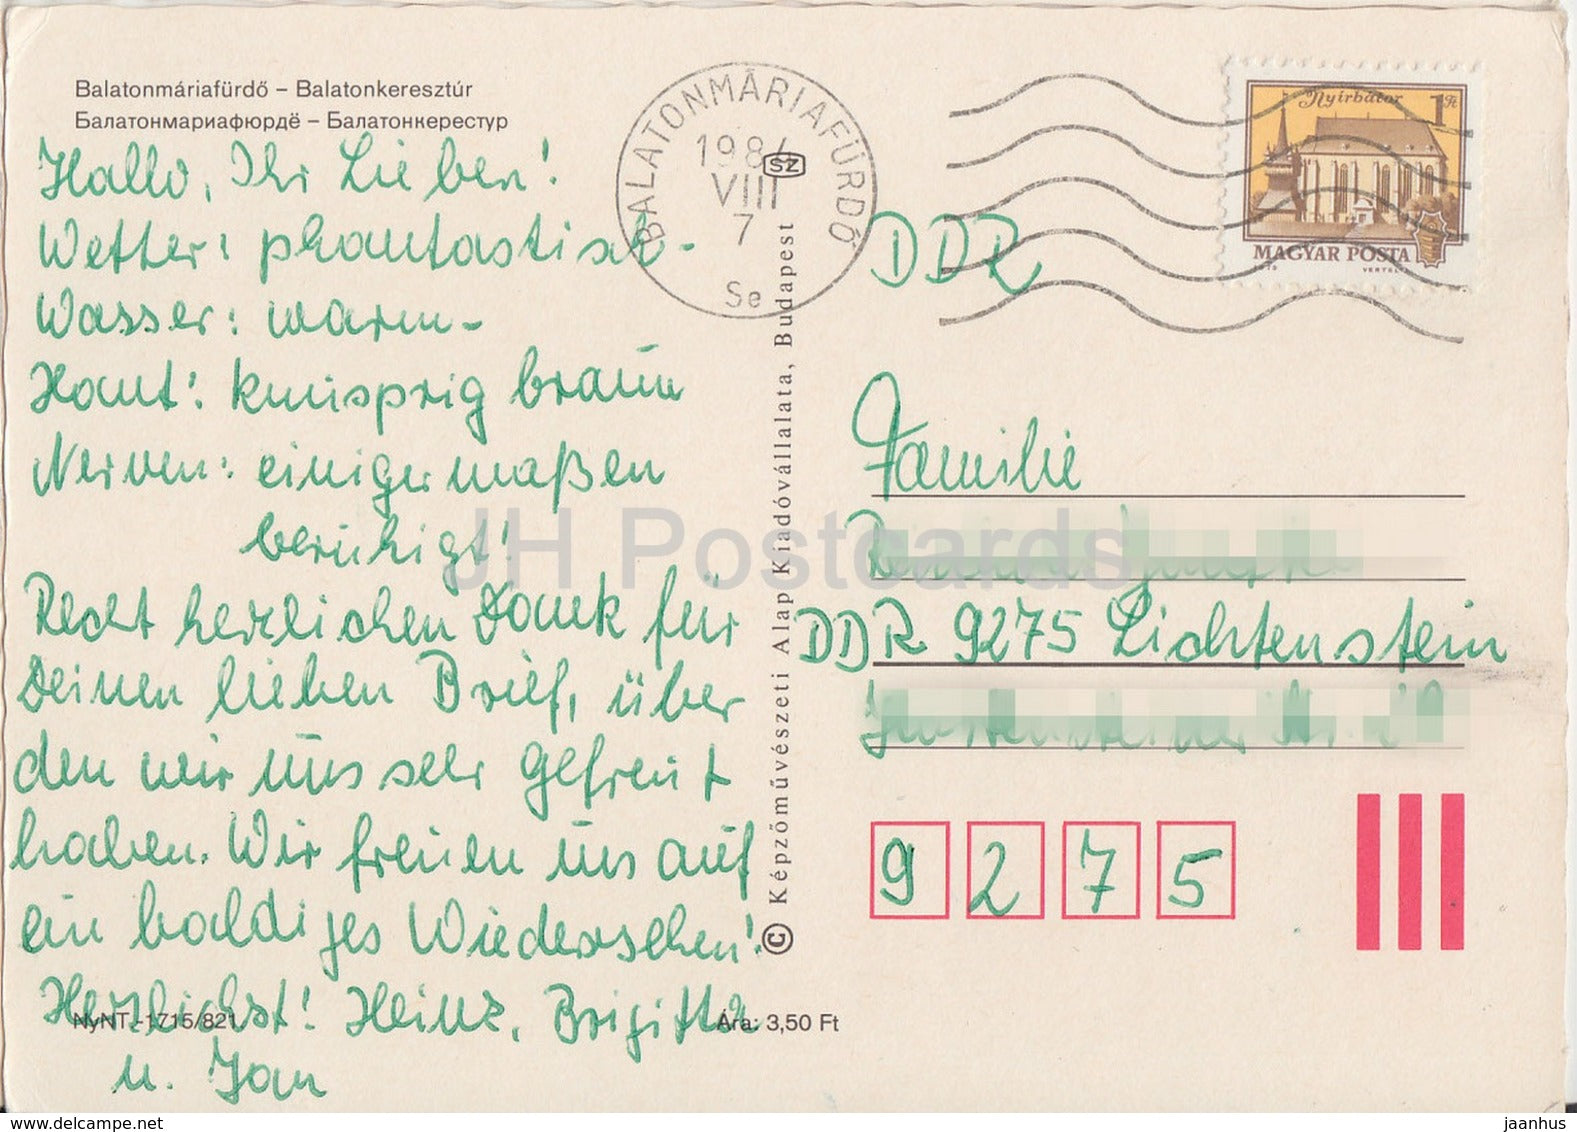 Balatonmáriafürdő – Balatonkeresztúr
Балатонмариафюрдё – Балатонкерестур
Hallo, Ihr Lieben!
Wetter: phantastisch-
Wasser: warm-
Haut: knusprig braun
Nerven: einigermaßen
beruhigt!
Recht herzlichen Dank für
Deinen lieben Brief, über
den wir uns sehr gefreut
haben. Wir freuen uns auf
ein baldiges Wiedersehen!
Herzlichst! Heinz, Brigitta
u. Jan
NyNT.-1715/821
Ára: 3,50 Ft
© Képzőművészeti Alap Kiadóvállalata, Budapest
BALATONMÁRIAFÜRDŐ
SZ
VIII
7
Se
Nyírbátor 1 Ft
MAGYAR POSTA
DDR
Familie
DDR 9275 Lichtenstein
9 2 7 5
JH Postcards
www.delcampe.net
jaanhus